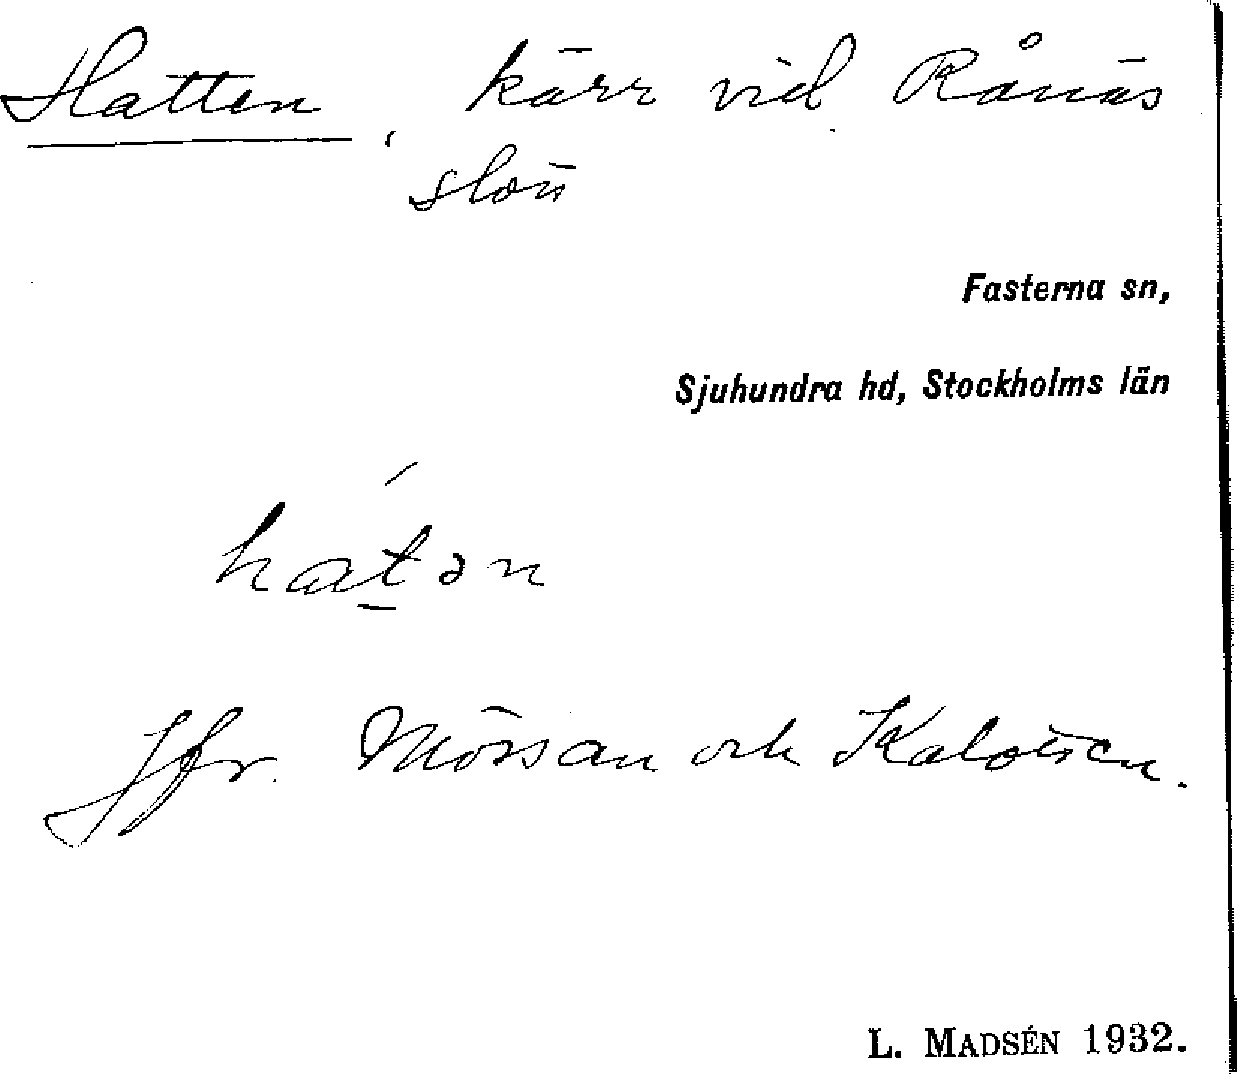 Hatten, kärr vid Rånäs
slott
Fasterna sn,
Sjuhundra hd, Stockholms län
hat́ən
Jfr. Mössan och Kalotten.
L. MADSÉN 1932.